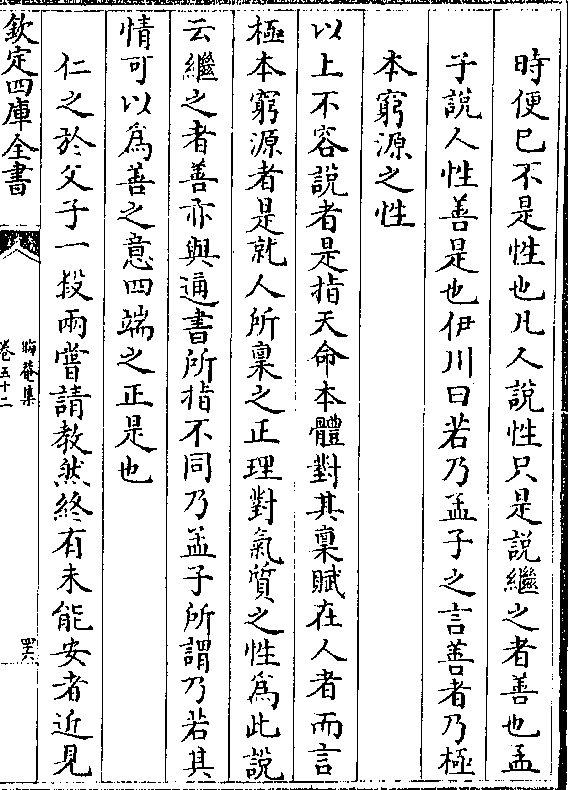 時便已不是性也凡人說性只是說繼之者善也孟
子說人性善是也伊川曰若乃孟子之言善者乃極
本窮源之性
以上不容說者是指天命本體對其稟賦在人者而言
極本窮源者是就人所稟之正理對氣質之性為此說
云繼之者善亦與通書所指不同乃孟子所謂乃若其
情可以為善之意四端之正是也
仁之於父子一段兩嘗請教然終有未能安者近見
欽定四庫全書
晦菴集
卷五十二